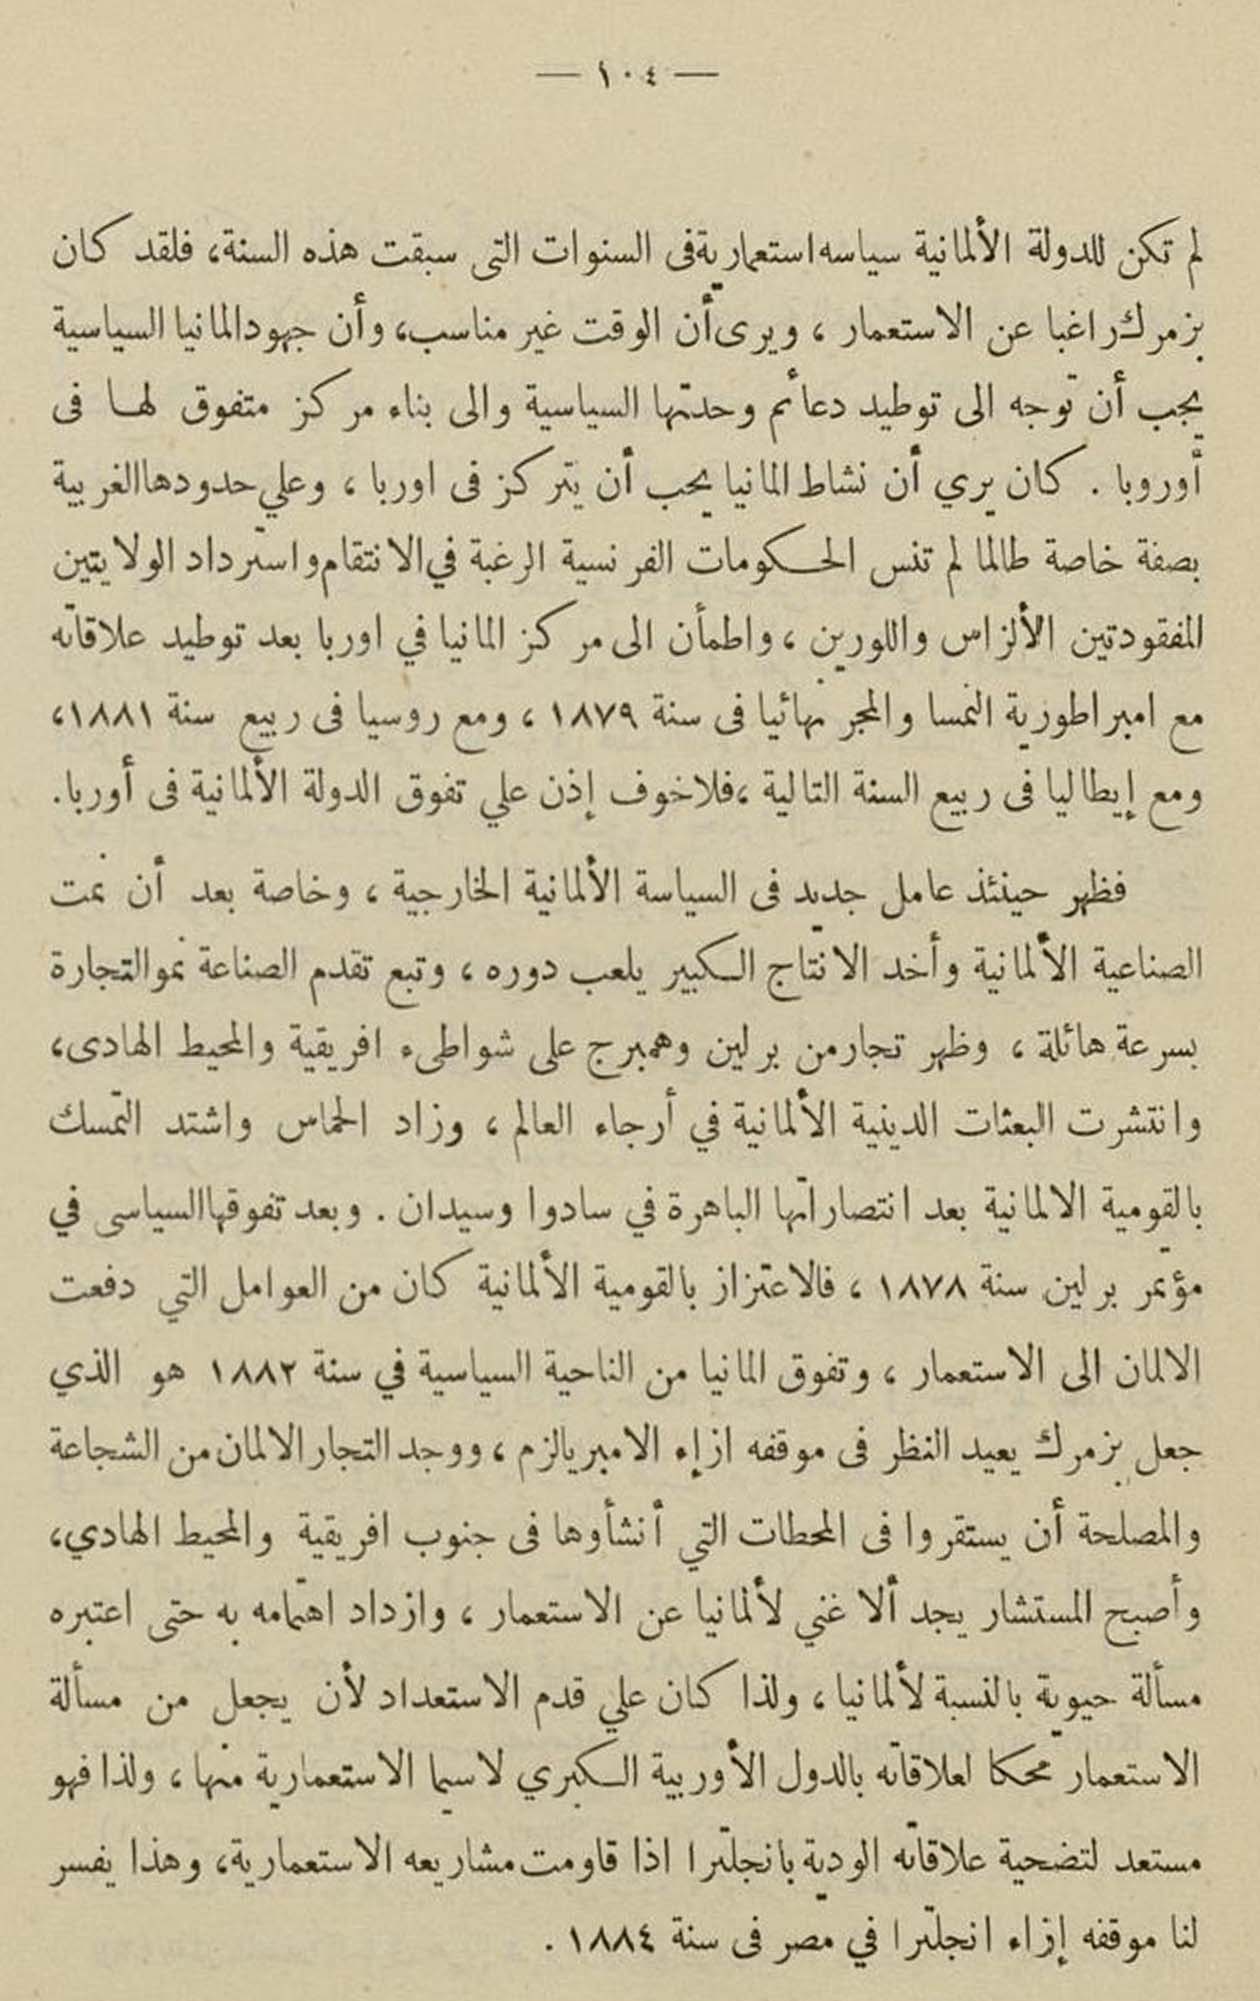 — ١٠٤ —
لم تكن للدولة الألمانية سياسه استعمارية فى السنوات التى سبقت هذه السنة، فلقد كان
بزمرك راغبا عن الاستعمار ، ويرى أن الوقت غير مناسب، وأن جهود المانيا السياسية
يجب أن توجه الى توطيد دعائم وحدتها السياسية والى بناء مركز متفوق لها فى
أوروبا . كان يري أن نشاط المانيا يجب أن يتركز فى اوربا ، وعلي حدودها الغربية
بصفة خاصة طالما لم تنس الحكومات الفرنسية الرغبة في الانتقام واسترداد الولايتين
المفقودتين الألزاس واللورين ، واطمأن الى مركز المانيا في اوربا بعد توطيد علاقاته
مع امبراطورية النمسا والمجر نهائيا فى سنة ١٨٧٩ ، ومع روسيا فى ربيع سنة ١٨٨١،
ومع إيطاليا فى ربيع السنة التالية ، فلاخوف إذن علي تفوق الدولة الألمانية فى أوربا.
فظهر حينئذ عامل جديد فى السياسة الألمانية الخارجية ، وخاصة بعد أن نمت
الصناعية الألمانية وأخد الانتاج الكبير يلعب دوره ، وتبع تقدم الصناعة نمو التجارة
بسرعة هائلة ، وظهر تجار من برلين وهمبرج على شواطىء افريقية والمحيط الهادى،
وانتشرت البعثات الدينية الألمانية في أرجاء العالم ، وزاد الحماس واشتد التمسك
بالقومية الالمانية بعد انتصاراتها الباهرة في سادوا وسيدان . وبعد تفوقها السياسى في
مؤتمر برلين سنة ١٨٧٨ ، فالاعتزاز بالقومية الألمانية كان من العوامل التي دفعت
الالمان الى الاستعمار ، وتفوق المانيا من الناحية السياسية في سنة ١٨٨٢ هو الذي
جعل بزمرك يعيد النظر فى موقفه ازإء الامبريالزم ، ووجد التجار الالمان من الشجاعة
والمصلحة أن يستقروا فى المحطات التي أنشأوها فى جنوب افريقية والمحيط الهادي،
وأصبح المستشار يجد ألا غني لألمانيا عن الاستعمار ، وازداد اهتمامه به حتى اعتبره
مسألة حيوية بالنسبة لألمانيا ، ولذا كان علي قدم الاستعداد لأن يجعل من مسألة
الاستعمار محكا لعلاقاته بالدول الأوربية الكبري لاسيما الاستعمارية منها ، ولذا فهو
مستعد لتضحية علاقاته الودية بانجلترا اذا قاومت مشاريعه الاستعمارية، وهذا يفسر
لنا موقفه إزاء انجلترا في مصر فى سنة ١٨٨٤ .